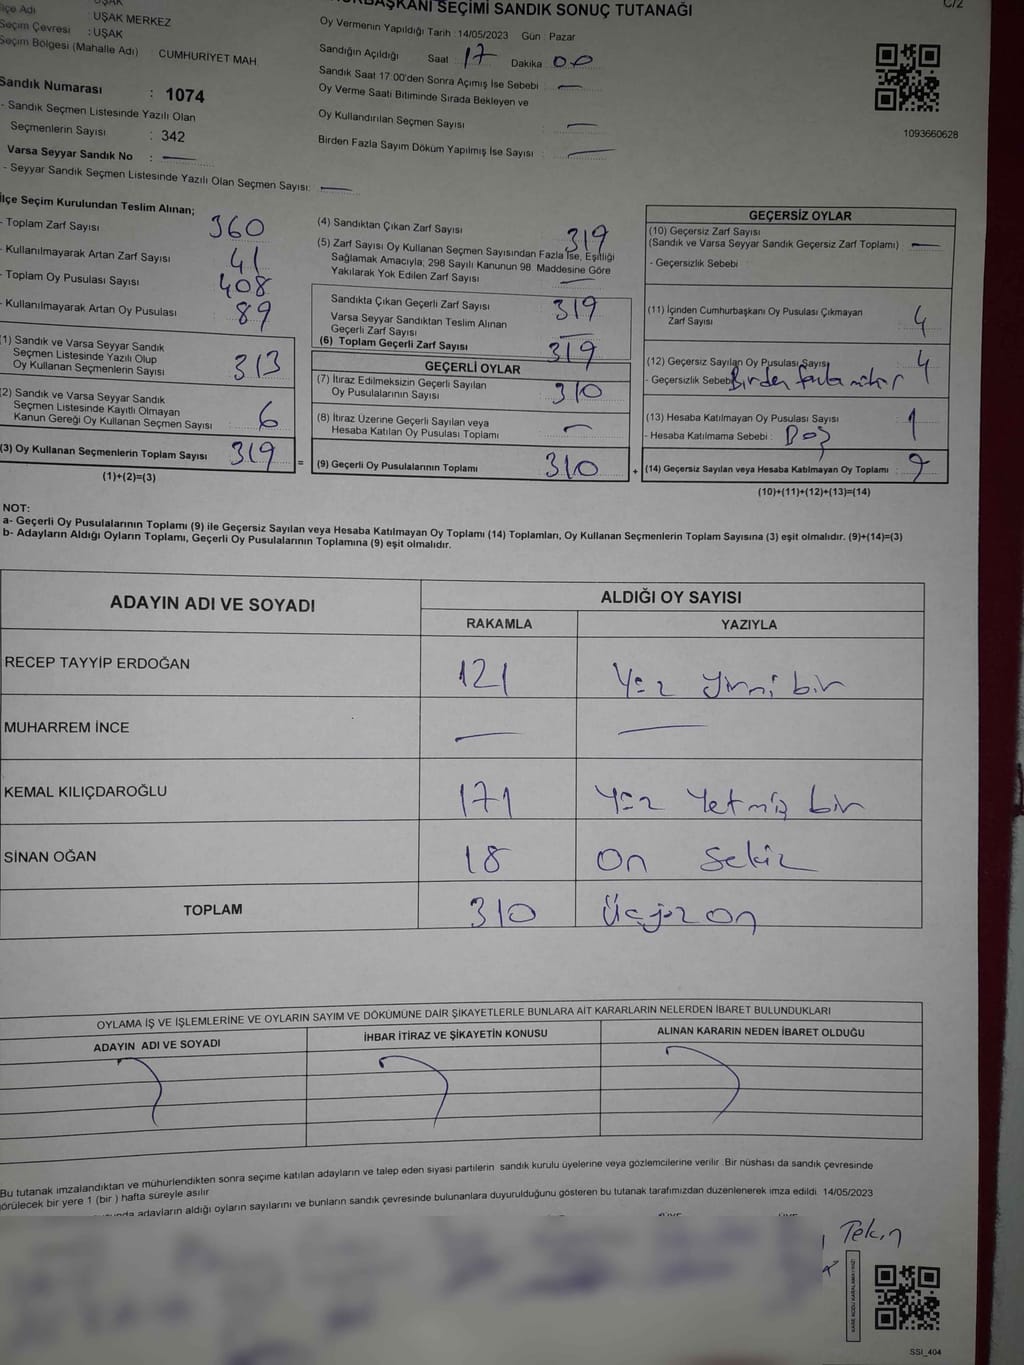 UŞAK
İlçe Adı : UŞAK MERKEZ
Seçim Çevresi : UŞAK
Seçim Bölgesi (Mahalle Adı) : CUMHURİYET MAH.
Sandık Numarası : 1074
- Sandık Seçmen Listesinde Yazılı Olan
Seçmenlerin Sayısı : 342
Varsa Seyyar Sandık No : —
- Seyyar Sandık Seçmen Listesinde Yazılı Olan Seçmen Sayısı: —
BAŞKANI SEÇİMİ SANDIK SONUÇ TUTANAĞI
Oy Vermenin Yapıldığı Tarih : 14/05/2023 Gün : Pazar
Sandığın Açıldığı Saat 17 Dakika 00
Sandık Saat 17:00'den Sonra Açımış İse Sebebi : —
Oy Verme Saati Bitiminde Sırada Bekleyen ve
Oy Kullandırılan Seçmen Sayısı : —
Birden Fazla Sayım Döküm Yapılmış İse Sayısı : —
C/2
1093660628
İlçe Seçim Kurulundan Teslim Alınan;
- Toplam Zarf Sayısı 360
- Kullanılmayarak Artan Zarf Sayısı 41
- Toplam Oy Pusulası Sayısı 408
- Kullanılmayarak Artan Oy Pusulası 89
(1) Sandık ve Varsa Seyyar Sandık
Seçmen Listesinde Yazılı Olup
Oy Kullanan Seçmenlerin Sayısı 313
(2) Sandık ve Varsa Seyyar Sandık
Seçmen Listesinde Kayıtlı Olmayan
Kanun Gereği Oy Kullanan Seçmen Sayısı 6
(3) Oy Kullanan Seçmenlerin Toplam Sayısı 319
(1)+(2)=(3)
=
(4) Sandıktan Çıkan Zarf Sayısı 319
(5) Zarf Sayısı Oy Kullanan Seçmen Sayısından Fazla İse, Eşitliği
Sağlamak Amacıyla, 298 Sayılı Kanunun 98 Maddesine Göre
Yakılarak Yok Edilen Zarf Sayısı —
Sandıkta Çıkan Geçerli Zarf Sayısı 319
Varsa Seyyar Sandıktan Teslim Alınan
Geçerli Zarf Sayısı —
(6) Toplam Geçerli Zarf Sayısı 319
GEÇERLİ OYLAR
(7) İtiraz Edilmeksizin Geçerli Sayılan
Oy Pusulalarının Sayısı 310
(8) İtiraz Üzerine Geçerli Sayılan veya
Hesaba Katılan Oy Pusulası Toplamı —
(9) Geçerli Oy Pusulalarının Toplamı 310
+
GEÇERSİZ OYLAR
(10) Geçersiz Zarf Sayısı
(Sandık ve Varsa Seyyar Sandık Geçersiz Zarf Toplamı) —
- Geçersizlik Sebebi
(11) İçinden Cumhurbaşkanı Oy Pusulası Çıkmayan
Zarf Sayısı 4
(12) Geçersiz Sayılan Oy Pusulası Sayısı 4
- Geçersizlik Sebebi Birden fazla mühür
(13) Hesaba Katılmayan Oy Pusulası Sayısı 1
- Hesaba Katılmama Sebebi : Boş
(14) Geçersiz Sayılan veya Hesaba Katılmayan Oy Toplamı 9
(10)+(11)+(12)+(13)=(14)
NOT:
a- Geçerli Oy Pusulalarının Toplamı (9) ile Geçersiz Sayılan veya Hesaba Katılmayan Oy Toplamı (14) Toplamları, Oy Kullanan Seçmenlerin Toplam Sayısına (3) eşit olmalıdır. (9)+(14)=(3)
b- Adayların Aldığı Oyların Toplamı, Geçerli Oy Pusulalarının Toplamına (9) eşit olmalıdır.
ADAYIN ADI VE SOYADI ALDIĞI OY SAYISI
RAKAMLA YAZIYLA
RECEP TAYYİP ERDOĞAN 121 Yüz yirmi bir
MUHARREM İNCE — —
KEMAL KILIÇDAROĞLU 171 Yüz Yetmiş bir
SİNAN OĞAN 18 On Sekiz
TOPLAM 310 Üçyüz on
OYLAMA İŞ VE İŞLEMLERİNE VE OYLARIN SAYIM VE DÖKÜMÜNE DAİR ŞİKAYETLERLE BUNLARA AİT KARARLARIN NELERDEN İBARET BULUNDUKLARI
ADAYIN ADI VE SOYADI İHBAR İTİRAZ VE ŞİKAYETİN KONUSU ALINAN KARARIN NEDEN İBARET OLDUĞU
Bu tutanak imzalandıktan ve mühürlendikten sonra seçime katılan adayların ve talep eden siyasi partilerin sandık kurulu üyelerine veya gözlemcilerine verilir. Bir nüshası da sandık çevresinde
görülecek bir yere 1 (bir ) hafta süreyle asılır
adayların aldığı oyların sayılarını ve bunların sandık çevresinde bulunanlara duyurulduğunu gösteren bu tutanak tarafımızdan düzenlenerek imza edildi. 14/05/2023
Tekin
KARE KODU KARALAMAYINIZ!
SSI_404